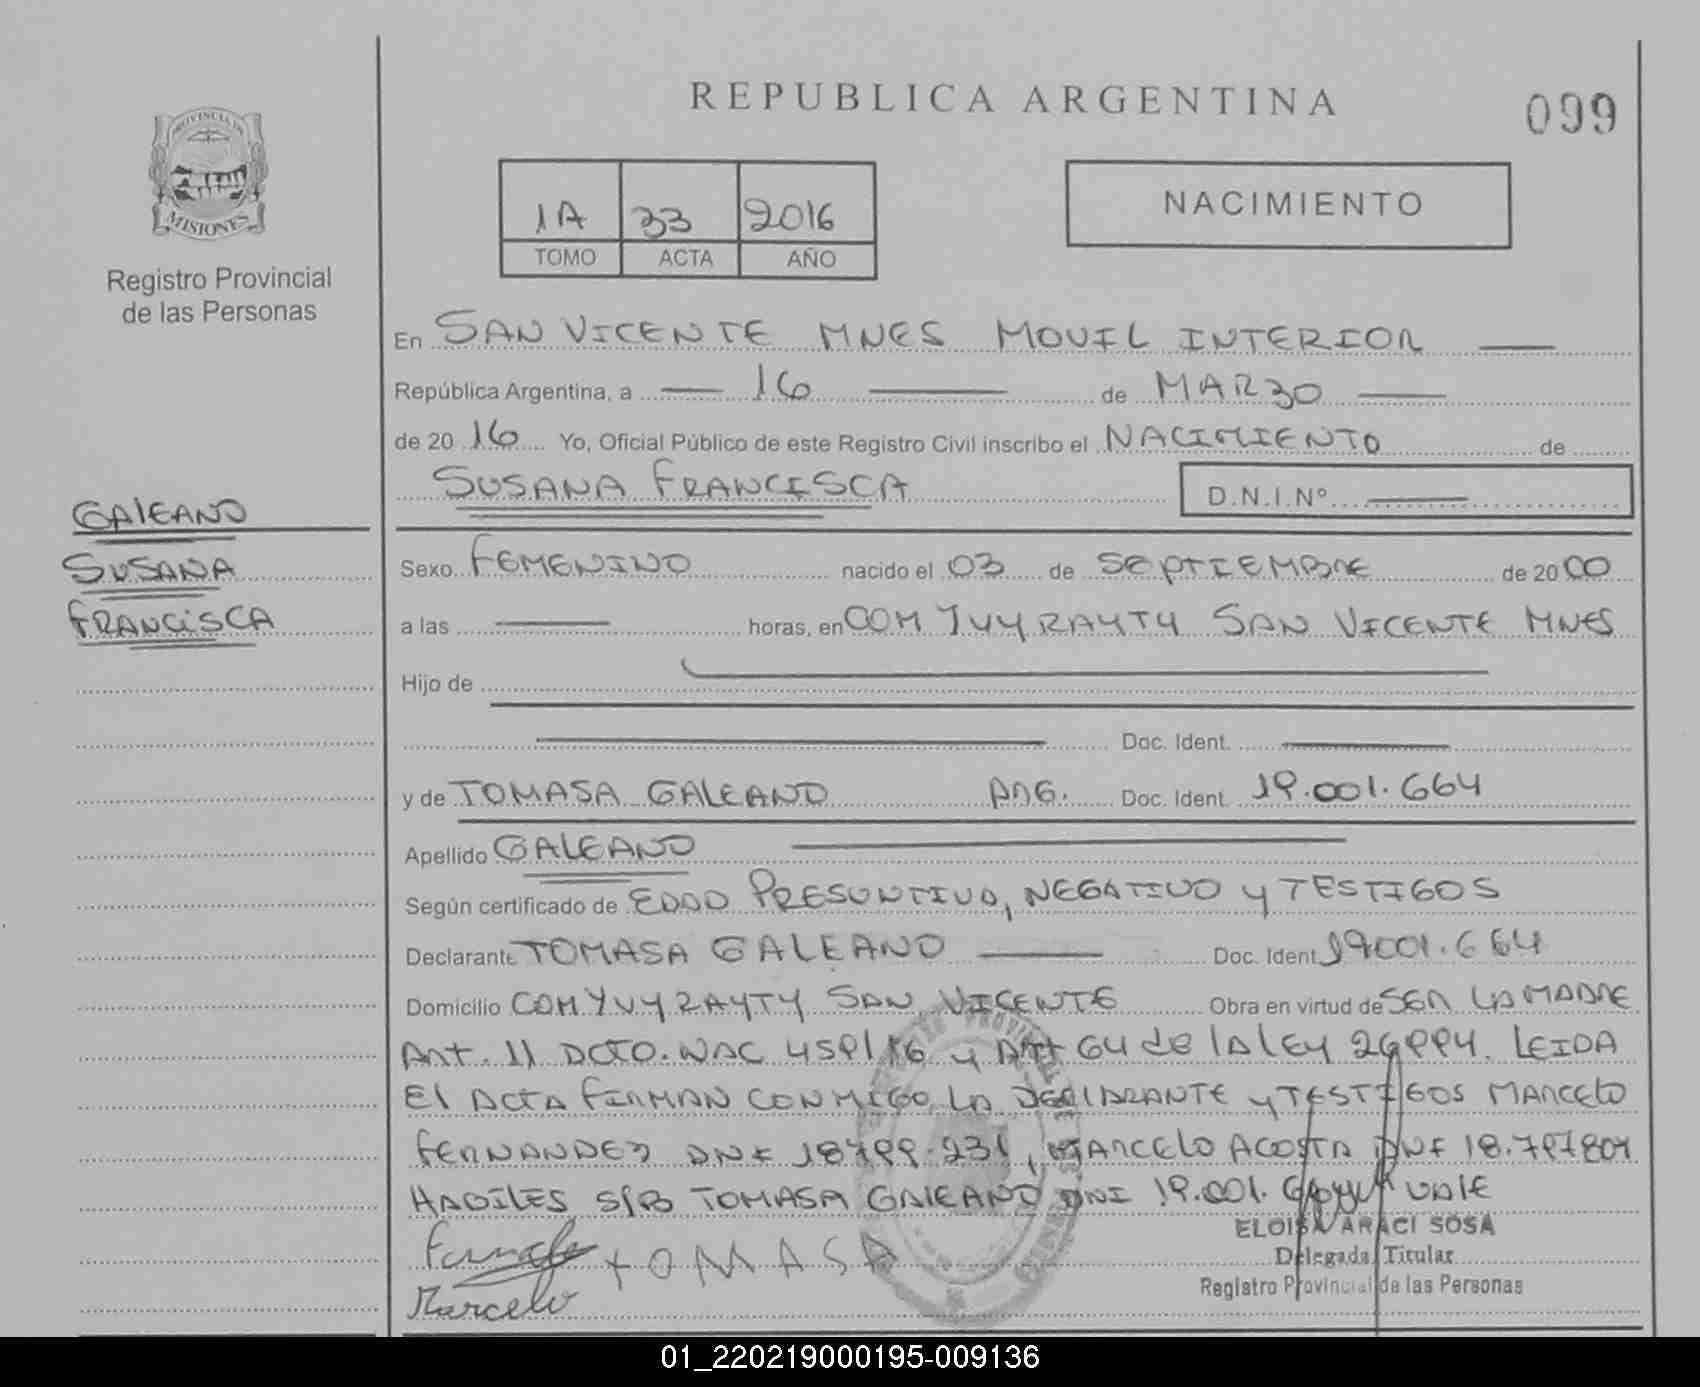 REPUBLICA ARGENTINA
099
PROVINCIA DE
MISIONES
Registro Provincial
de las Personas
1A 33 2016
TOMO ACTA AÑO
NACIMIENTO
En SAN VICENTE MNES MOVIL INTERIOR
República Argentina, a 16 de MARZO
de 20 16 Yo, Oficial Público de este Registro Civil inscribo el NACIMIENTO de
SUSANA FRANCISCA D.N.I.Nº
GALEANO
SUSANA
FRANCISCA
Sexo FEMENINO nacido el 03 de SEPTIEMBRE de 20 00
a las horas, en COM YVY RAYTY SAN VICENTE MNES
Hijo de
Doc. Ident.
y de TOMASA GALEANO ARG. Doc. Ident. 19.001.664
Apellido GALEANO
Según certificado de EDAD PRESUNTIVA, NEGATIVO y TESTIGOS
Declarante TOMASA GALEANO Doc. Ident 19001.664
Domicilio COM YVY RAYTY SAN VICENTE Obra en virtud de SER LA MADRE
Art. 11 DCTO. NAC 459/16 y Art 64 de la LEY 26994. LEIDA
El ACTA FIRMAN CONMIGO LA DECLARANTE y TESTIGOS MARCELO
FERNANDEZ DNI 18799.231, MARCELO ACOSTA DNI 18.797804
HABILES S/B TOMASA GALEANO DNI 19.001. VALE
TOMASA
Marcelo
ELOISA ARACI SOSA
Delegada Titular
Registro Provincial de las Personas
01_220219000195-009136